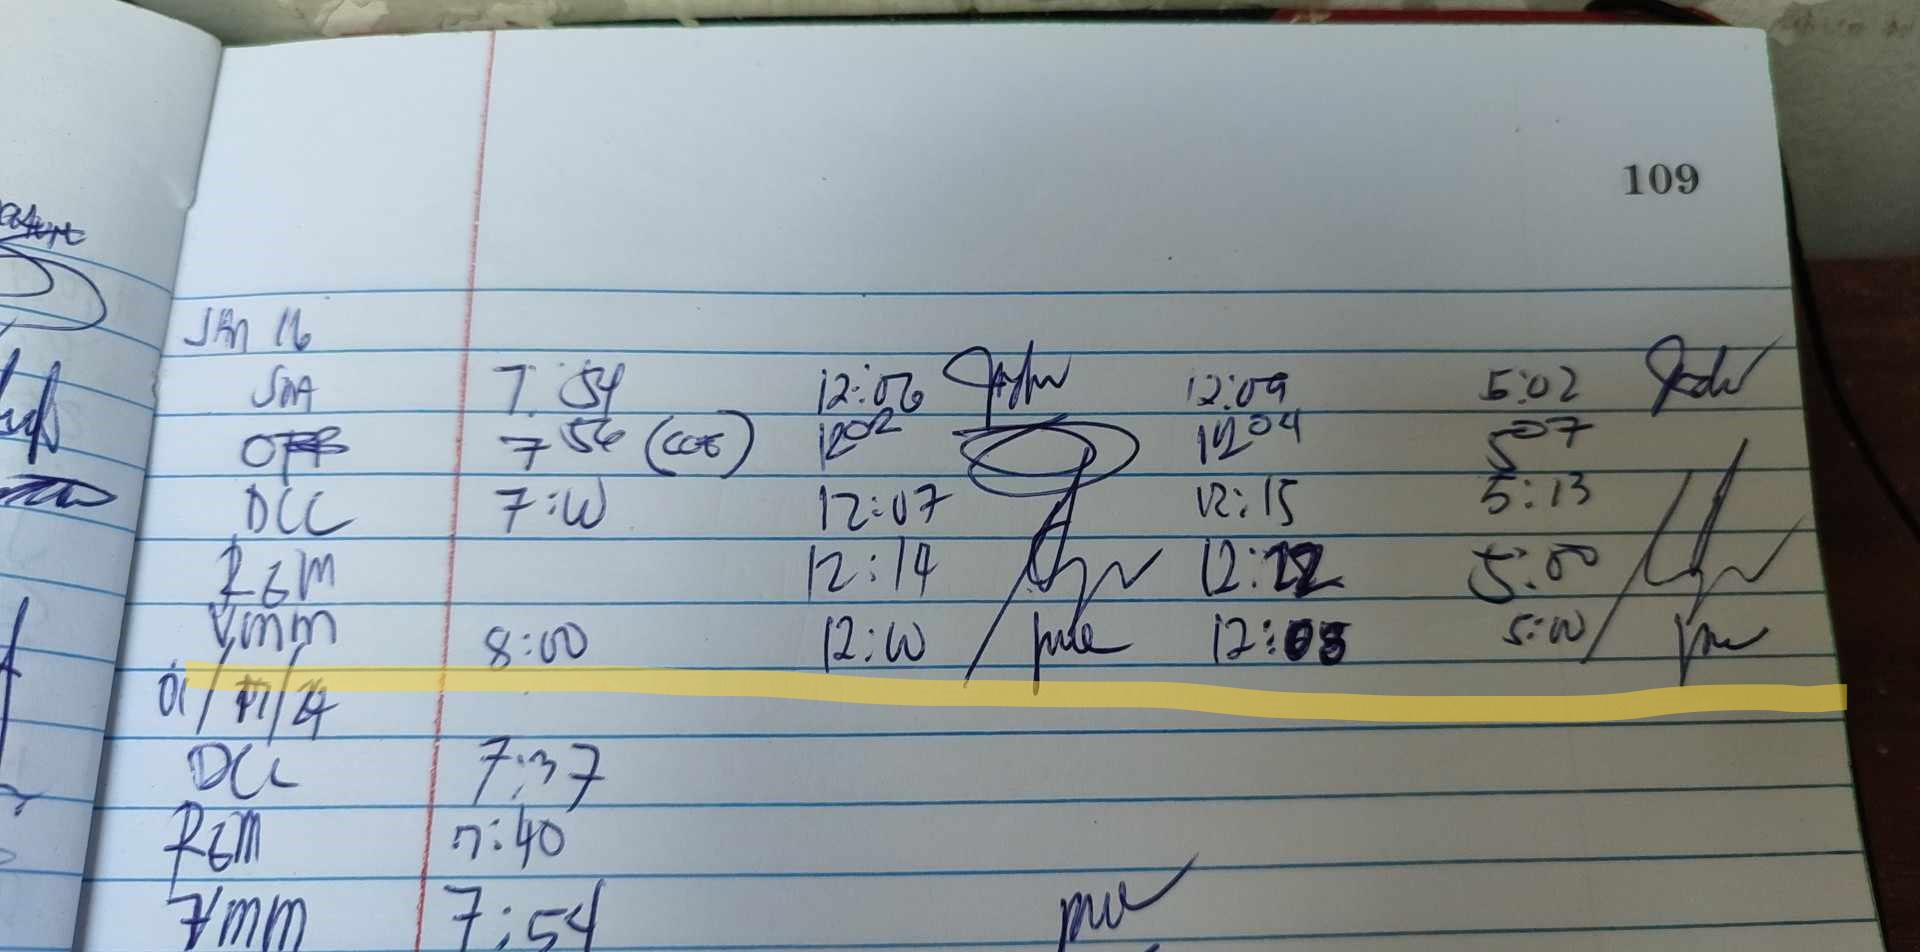 109
JAN 16
JMA 7:54 12:06 12:09 5:02
7 56 (COS) 12 02 12 04 5 07
DCC 7:W 12:07 12:15 5:13
RGM 12:14 12:12 5:00
VMM 8:00 12:W 12:05 5:W
01/17/24
DCC 7:37
RGM 7:40
VMM 7:54